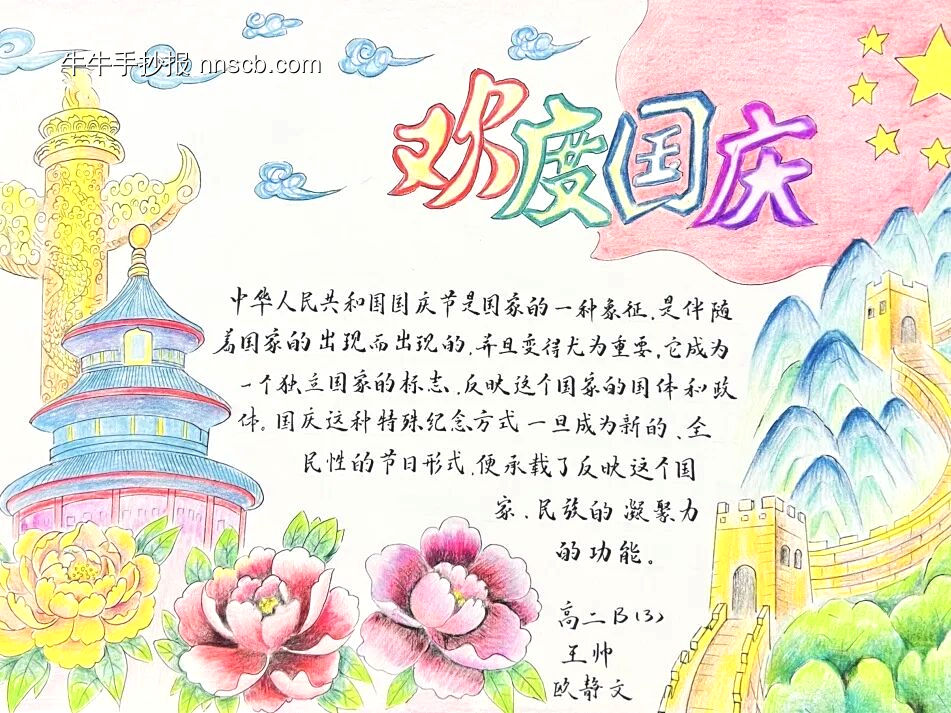 牛牛手抄报 nnscb.com
欢度国庆
中华人民共和国国庆节是国家的一种象征,是伴随
着国家的出现而出现的,并且变得尤为重要,它成为
一个独立国家的标志,反映这个国家的国体和政
体。国庆这种特殊纪念方式一旦成为新的、全
民性的节日形式,便承载了反映这个国
家、民族的凝聚力
的功能。
高二B(3)
王帅
欧静文